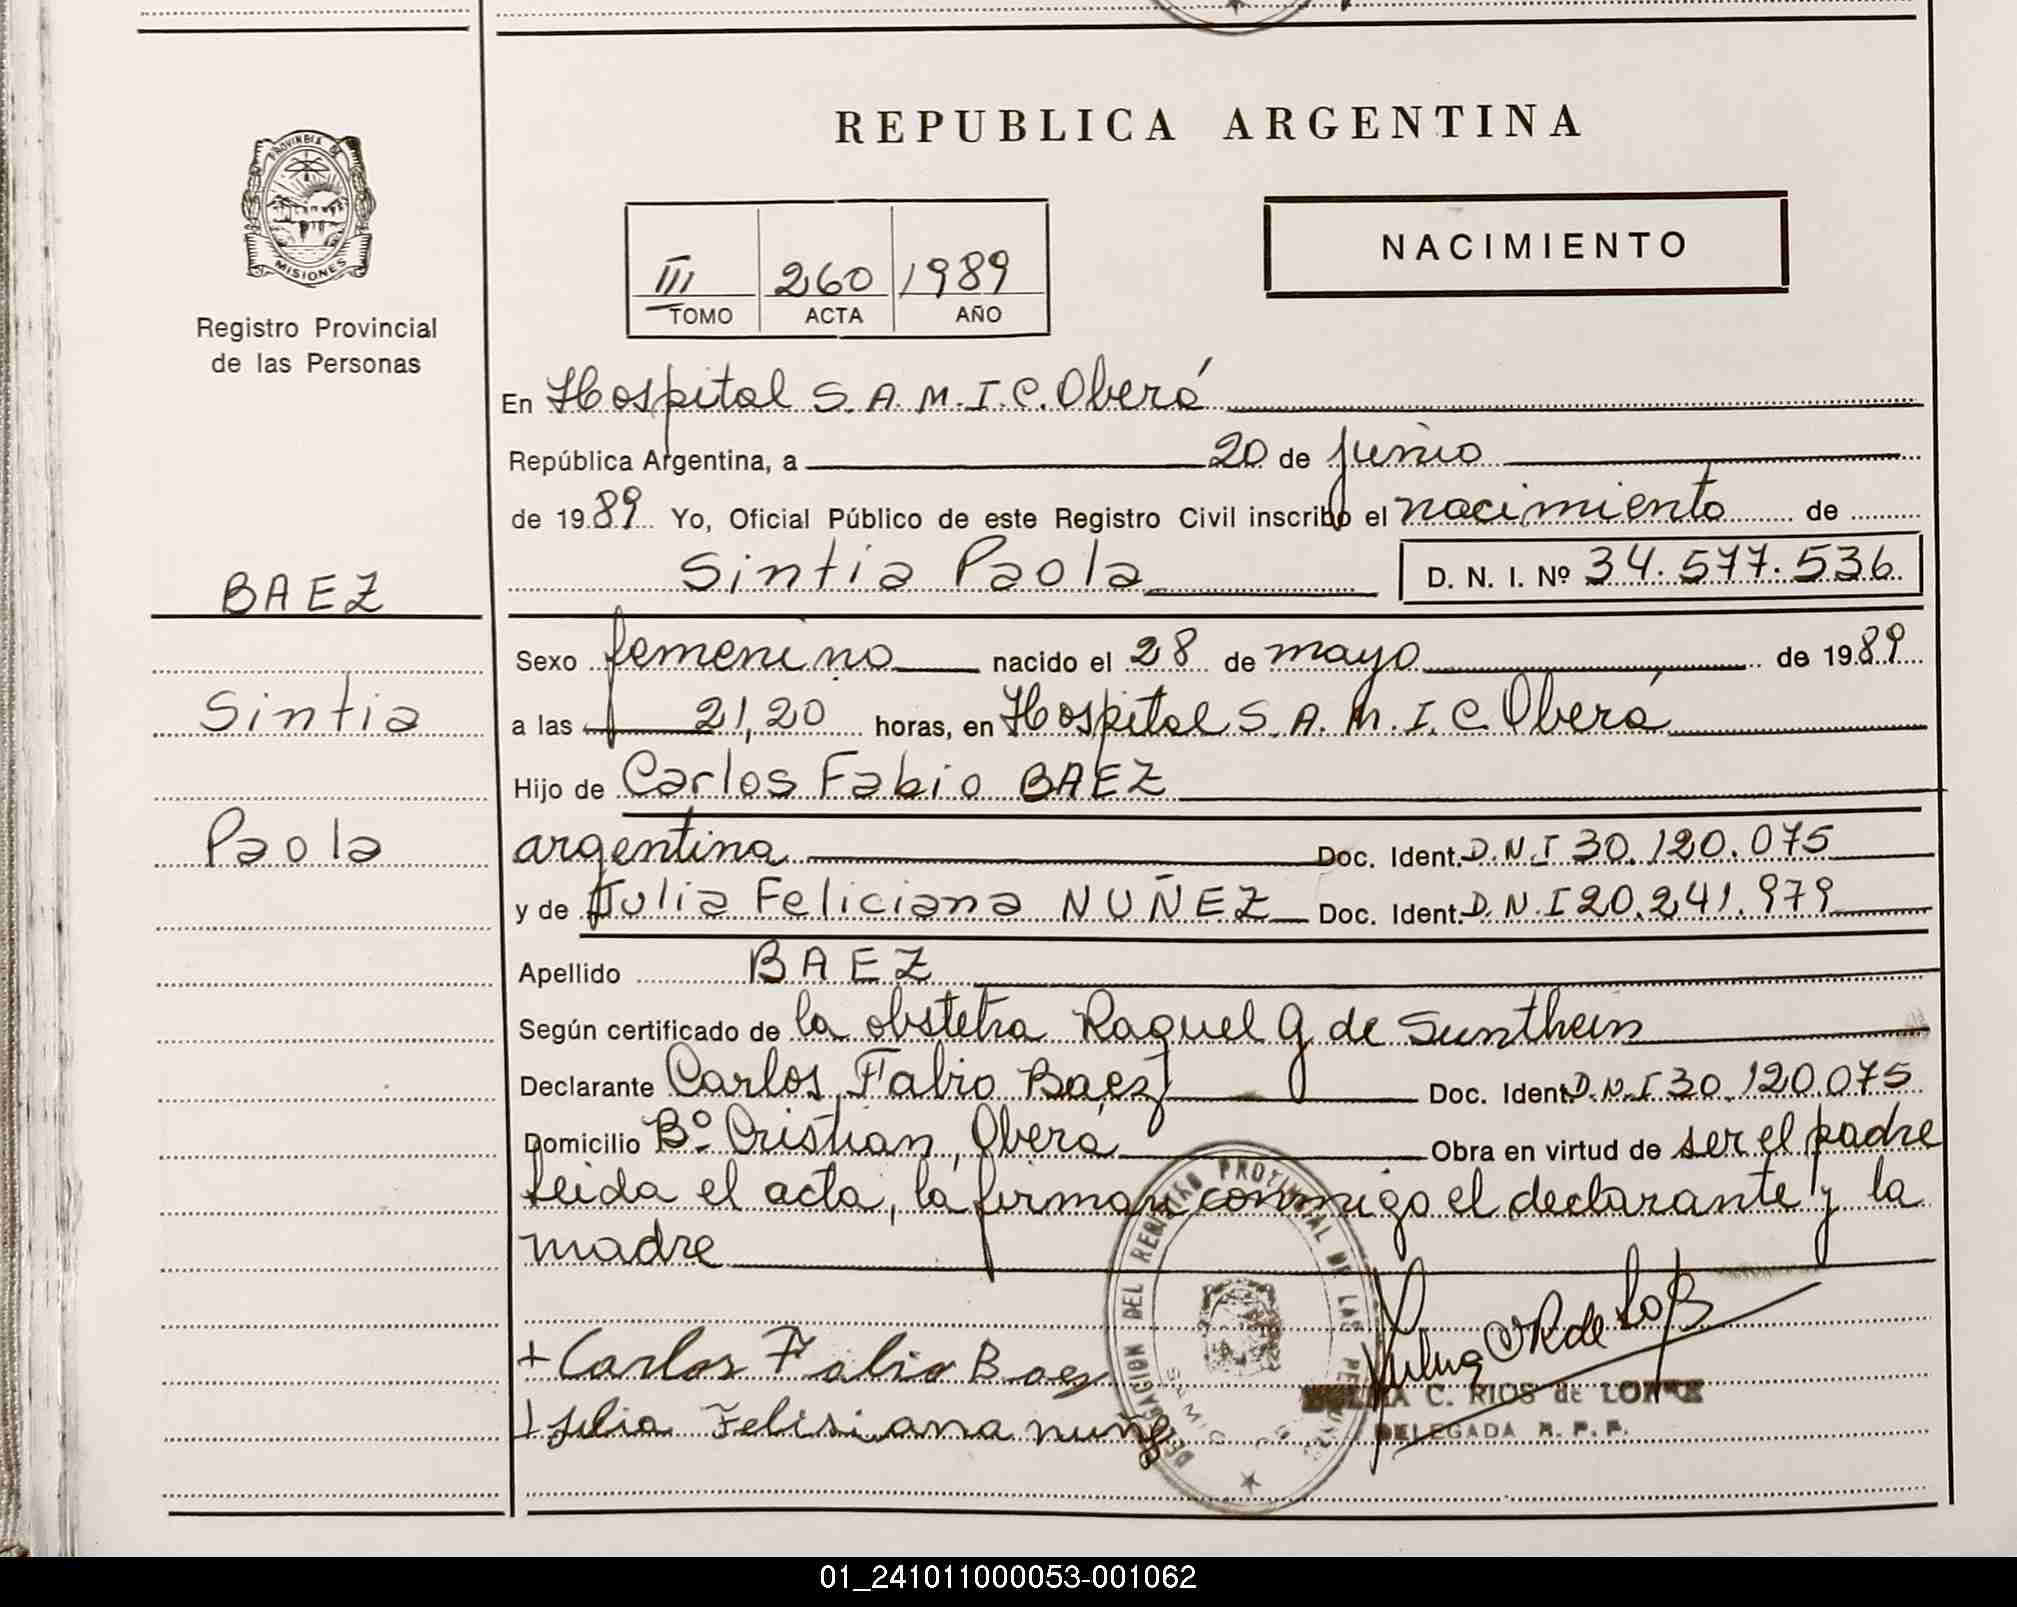 REPUBLICA ARGENTINA
PROVINCIA DE
MISIONES
Registro Provincial
de las Personas
NACIMIENTO
III 260 1989
TOMO ACTA AÑO
En Hospital S.A.M.I.C. Oberá
República Argentina, a 20 de junio
de 1989 Yo, Oficial Público de este Registro Civil inscribo el nacimiento de
Sintia Paola D. N. I. Nº 34.577.536
BAEZ
Sintia
Paola
Sexo femenino nacido el 28 de mayo de 1989
a las 21,20 horas, en Hospital S.A.M.I.C. Oberá
Hijo de Carlos Fabio BAEZ
argentina Doc. Ident. D.N.I 30.120.075
y de Julia Feliciana NUÑEZ Doc. Ident. D.N.I 20.241.979
Apellido BAEZ
Según certificado de la obstetra Raquel G de Sunthein
Declarante Carlos Fabio Baez Doc. Ident D.N.I 30.120.075
Domicilio Bº Cristian, Oberá Obra en virtud de ser el padre
leida el acta, la firman conmigo el declarante y la
madre
DELEGACION DEL REGISTRO PROVINCIAL DE LAS PERSONAS
+ Carlos Fabio Baez
+ Julia Felisiana nuñez
C. RIOS de
DELEGADA R. P. P.
01_241011000053-001062